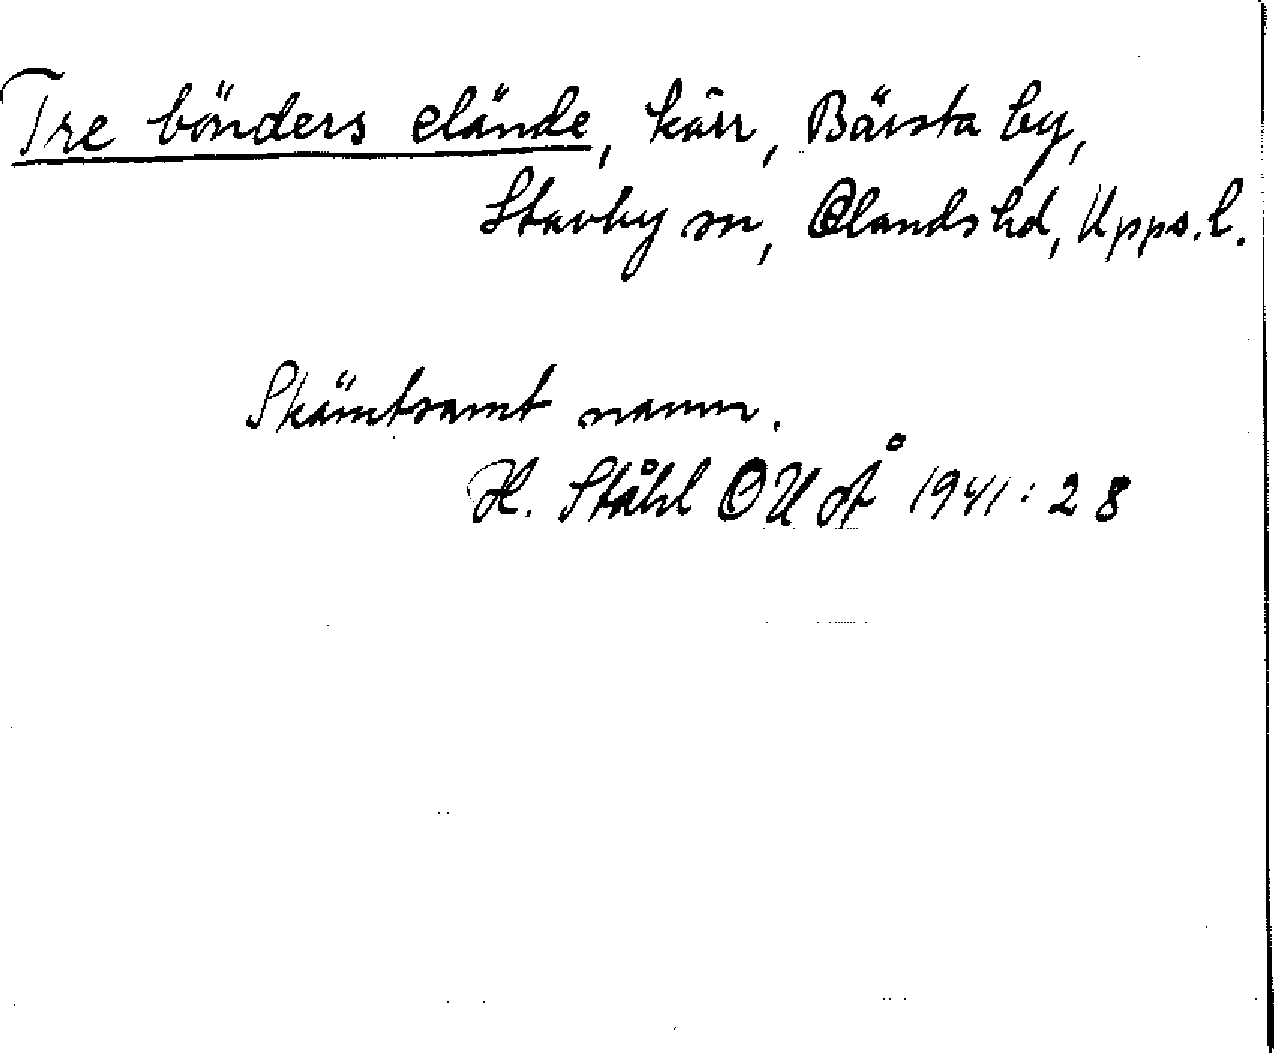 Tre bönders elände, kärr, Bärsta by,
Stavby sn, Olands hd, Upps. l.
Skämtsamt namn.
H. Ståhl OUÅ 1941: 28